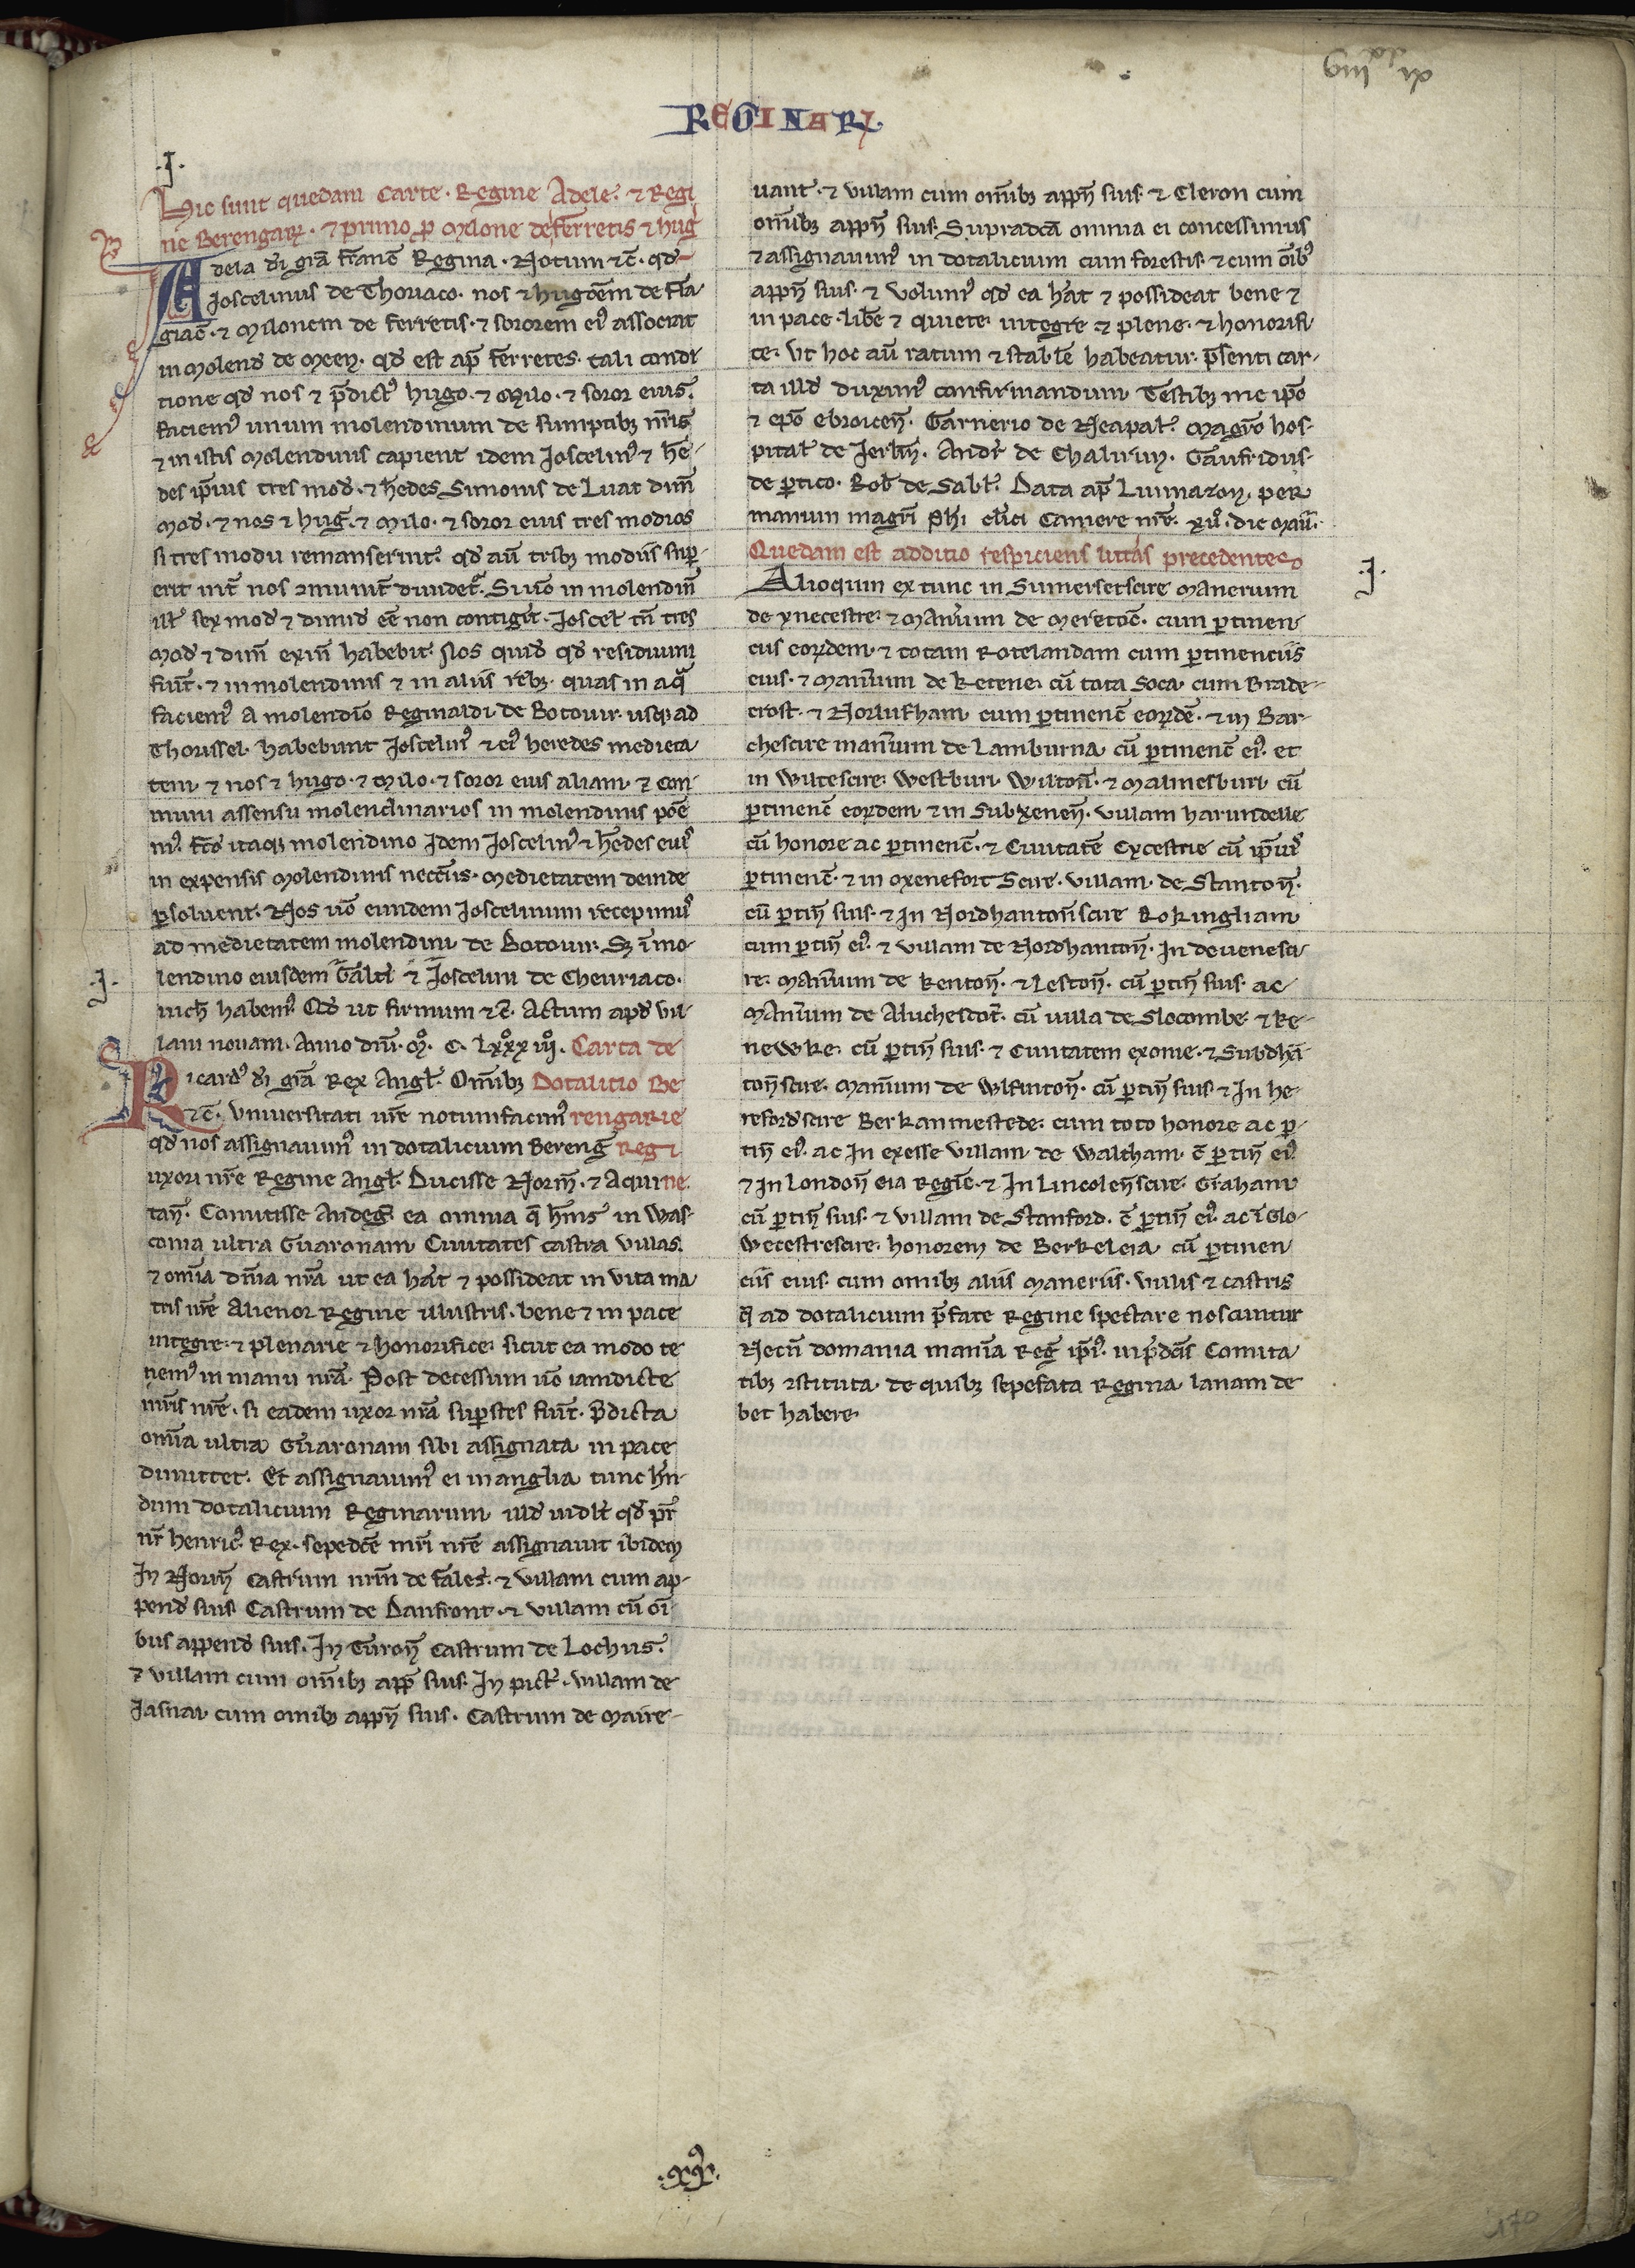 REGINARꝜ.
.I.
Hic sunt quedam Carte. Regine Adele. ⁊ Regi
ne Berengarꝝ. ⁊ primo ꝑ Milone de ferretis ⁊ hug̃
Adela d̃i gr̃a Franc̃ Regina. Notum ⁊c̃. qd̃
Joscelinus de Thoriaco. nos ⁊ hugõem de Fla
giac̃. ⁊ Milonem de ferretis. ⁊ sororem eiꝰ associat
in Molend̃ de Mecy. qd̃ est ap̃ ferretes. tali condi
tione qd̃ nos ⁊ p̃dictꝰ hugo. ⁊ Milo. ⁊ soror eius.
faciemꝰ unum molendinum de sumptibꝫ nr̃is
⁊ in istis Molendinis capient idem Joscelinꝰ ⁊ he-
des ip̃ius tres mod̃. ⁊ h̃edes Simonis de Luat dim̃
mod̃. ⁊ nos ⁊ hug̃. ⁊ Milo. ⁊ soror eius tres modios
si tres modii remanserint. qd̃ aũ tribꝫ modiis sup̱
erit int̃ nos ꝯmunit̃ diuidet᷑. Si uõ in molendin̄
ill̃ sex mod̃ ⁊ dimid̃ eẽ non contigit̃. Joscel̃ tñ tres
mod̃ ⁊ dim̃ exiñ habebit. Nos quid̃ qd̃ residuum
fuit̃. ⁊ in molendinis ⁊ in aliis reb̃ꝫ. quas in aq̃
faciemꝰ a molendiño Reginaldi de Botouir. usqꝫ ad
Thorissel. habebunt Joscelinꝰ ⁊ eiꝰ heredes medieta
tem. ⁊ nos ⁊ hugo. ⁊ Milo. ⁊ soror eius aliam. ⁊ com
muni assensu molendinarios in molendinis ponẽ
mꝰ. Fc̃o itaqꝫ molendino Idem Joscelinꝰ ⁊ h̃edes eiꝰ
in expensis Molendinis nectiis. Medietatem deinde
ꝑsoluent. Nos uõ eundem Joscelinum recepimꝰ
ad medietatem molendini de Botouir. Sꝫ ĩ mo-
lendino eiusdem Galt̃i ⁊ Joscelini de Cheuriaco.
.I.
nich̃ habemꝰ. Qd̃ ut firmum ⁊c̃. Actum apd̃ vil-
lam nouam. Anno dñi. Mº. C. Lxxx iiiº. Carta de
Ricardꝰ d̃i gr̃a Rex Angl̃. Om̃ibꝫ Dotalitio Be
⁊c̃. Vniuersitati ur̃e notum facimꝰ rengarie
qd̃ nos assignauimꝰ in dotalicium Bereng̃ Regi
uxori nr̃e Regine Angl̃. Ducisse Norm̃. ⁊ Aqui ne.
tañ. Comitisse Andeg̃. ea omnia q̃ h̃emꝰ in Was-
conia ultra Guaronam Ciuitates castra villas.
⁊ om̃ia dñia nr̃a ut ea h̃at ⁊ possideat in vita ma
tris nr̃e Alienor Regine illustris. bene ⁊ in pace
integre. ⁊ plenarie ⁊ honorifice. sicut ea modo te
nemꝰ in manu nr̃a. Post decessum uõ iamdicte
mr̃is nr̃e. si eadem uxor nr̃a supstes fuit̃. p̃dicta
om̃ia ultra Guaronam sibi assignata in pace
dimittet. Et assignauimꝰ ei in anglia tunc h̃n-
dum dotalicium Reginarum illd̃ uidl̃t qd̃ pr̃
nr̃ henricꝰ Rex. sepedc̃e mr̃i nr̃e assignauit ibidem
In Norm̃ Castrum nr̃m de Fales̃. ⁊ villam cum ap-
pend̃ suis. Castrum de Danfront. ⁊ villam cũ om̃i
bus append̃ suis. In Turoñ Castrum de Lochis.
⁊ villam cum om̃ibꝫ app̃ suis. In pict̃. villam de
Jasnai cum omibꝫ appñ suis. Castrum de Maire-
uant. ⁊ villam cum om̃ibꝫ appñ suis. ⁊ Cleron cum
om̃ibꝫ appñ suis. Supradc̃a omnia ei concessimus
⁊ assignauimꝰ in dotalicium cum forestis. ⁊ cum õibꝰ
appñ suis. ⁊ volumꝰ qd̃ ea h̃at ⁊ possideat bene ⁊
in pace. lib̃e ⁊ quiete. integre ⁊ plene. ⁊ honorifi
ce. Vt hoc aũ ratum ⁊ stabile habeatur. p̃senti car-
ta illd̃ duximꝰ confirmandum. Testibꝫ me ip̃o
⁊ ep̃o ebroiceñ. Garnerio de Neapol̃. Magr̃o hos-
pital̃ de Jerl̃m. Andr̃ de Chaluiny. Gaufridus
de ꝑtico. Rob̃ de Sabl̃. Data ap̃ Limazon. per
manum magr̃i Ph̃i cl̃ici Camere nr̃e. xijº. die Maii.
Quedam est additio respiciens litt̃as precedentes
.I.
Alioquin ex tunc in Sumersetscire Manerium
de ynecestre. ⁊ Man̄ium de Meretoc̃. cum ꝑtinen
ciis eoꝝdem. ⁊ totam Rotelandam cum ꝑtinenciis
eius. ⁊ Man̄ium de Ketene. cũ tota soca. cum Brade-
crost. ⁊ Norlufham cum ꝑtinenc̃ eoꝝdẽ. ⁊ in Bar-
chescire man̄ium de Lamburna cũ ꝑtinenc̃ eiꝰ. et
in Wiltescire. Westburi. Wiltoñ. ⁊ Malmesburi cũ
ꝑtinenc̃ eoꝝdem. ⁊ in Subxeneñ. villam harundelle
cũ honore ac ꝑtinenc̃. ⁊ Ciuitatẽ Cycestrie cũ ip̃iꝰ
ꝑtinenc̃. ⁊ in oxenefort Scire. villam de Stantoñ.
cũ ꝑtiñ suis. ⁊ In Nordhantoñscire Rokingham
cum ꝑtiñ eiꝰ. ⁊ villam de Nordhantoñ. In deuenesci
re. Man̄ium de kentoñ. ⁊ Lestoñ. cũ ꝑtiñ suis. ac
Man̄ium de Aluchesdot̃. cũ uilla de Slocombe. ⁊ ke-
newke. cũ ꝑtiñ suis. ⁊ Ciuitatem exonie. ⁊ Subdhã
toñscire. Man̄ium de Wlfintoñ. cũ ꝑtiñ suis. ⁊ In he-
refordscire Berkanmestede. cum toto honore ac ꝑ-
tiñ eiꝰ. ac In exesse villam de Waltham. c̃ ꝑtiñ eiꝰ.
⁊ In Londoñ eia Regie. ⁊ In Lincoleñscire. Graham
cũ ꝑtiñ suis. ⁊ villam de Stanford. c̃ ꝑtiñ eiꝰ. ac ĩ Glo-
wecestrescire. honorem de Berkeleia cũ ꝑtinen
ciis eius. cum omibꝫ aliis Maneriis. villis ⁊ castris
q̃ ad dotalicium p̃fate Regine spectare noscuntur
Necñ domania man̄ia Reg̃ ip̃iꝰ. in p̃dc̃is Comita
tibꝫ ꝯstituta. de quibꝫ sepefata Regina lanam de
bet habere.
170